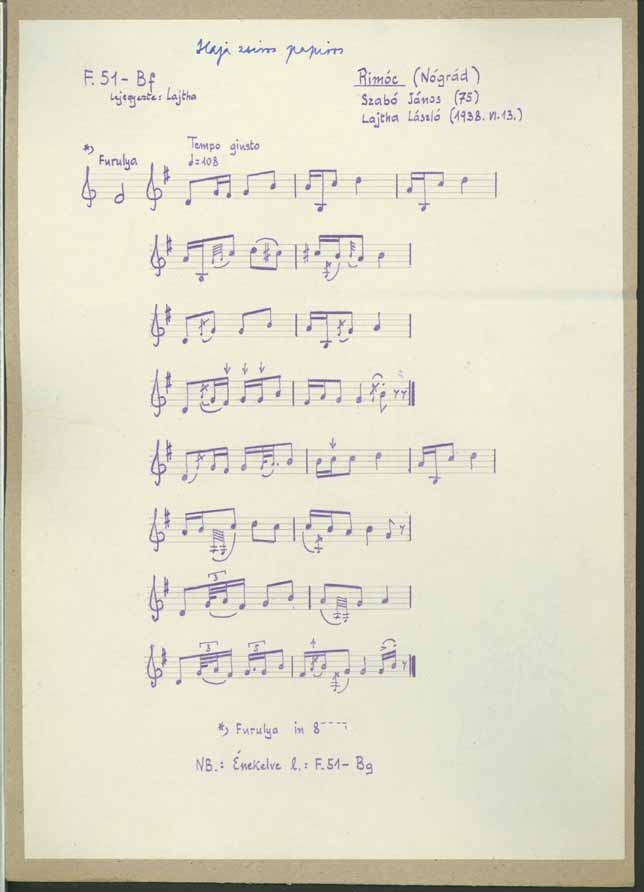 Haj zsiros papiros
F. 51 - Bf
lejegyezte: Lajtha
Rimóc (Nógrád)
Szabó János (75)
Lajtha László (1938. VI. 13.)
*) Furulya
Tempo giusto
♩=108
3
3
3
*) Furulya in 8----
NB.: Énekelve l.: F. 51 - Bg